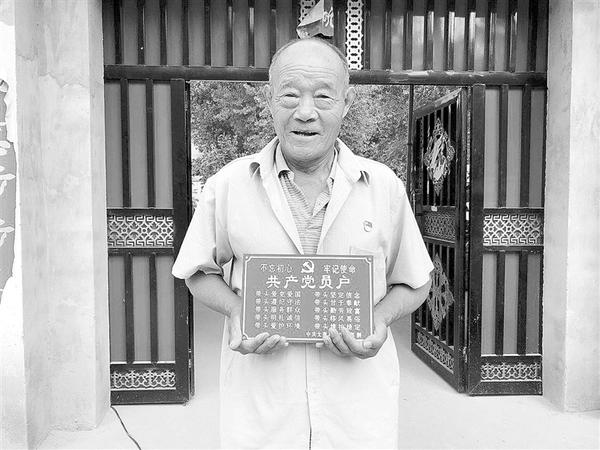 不忘初心 牢记使命
共产党员户
带头爱党爱国 带头坚定信念
带头遵纪守法 带头甘于奉献
带头服务群众 带头勤劳致富
带头明礼诚信 带头移风易俗
带头爱护环境 带头维护稳定
中共太